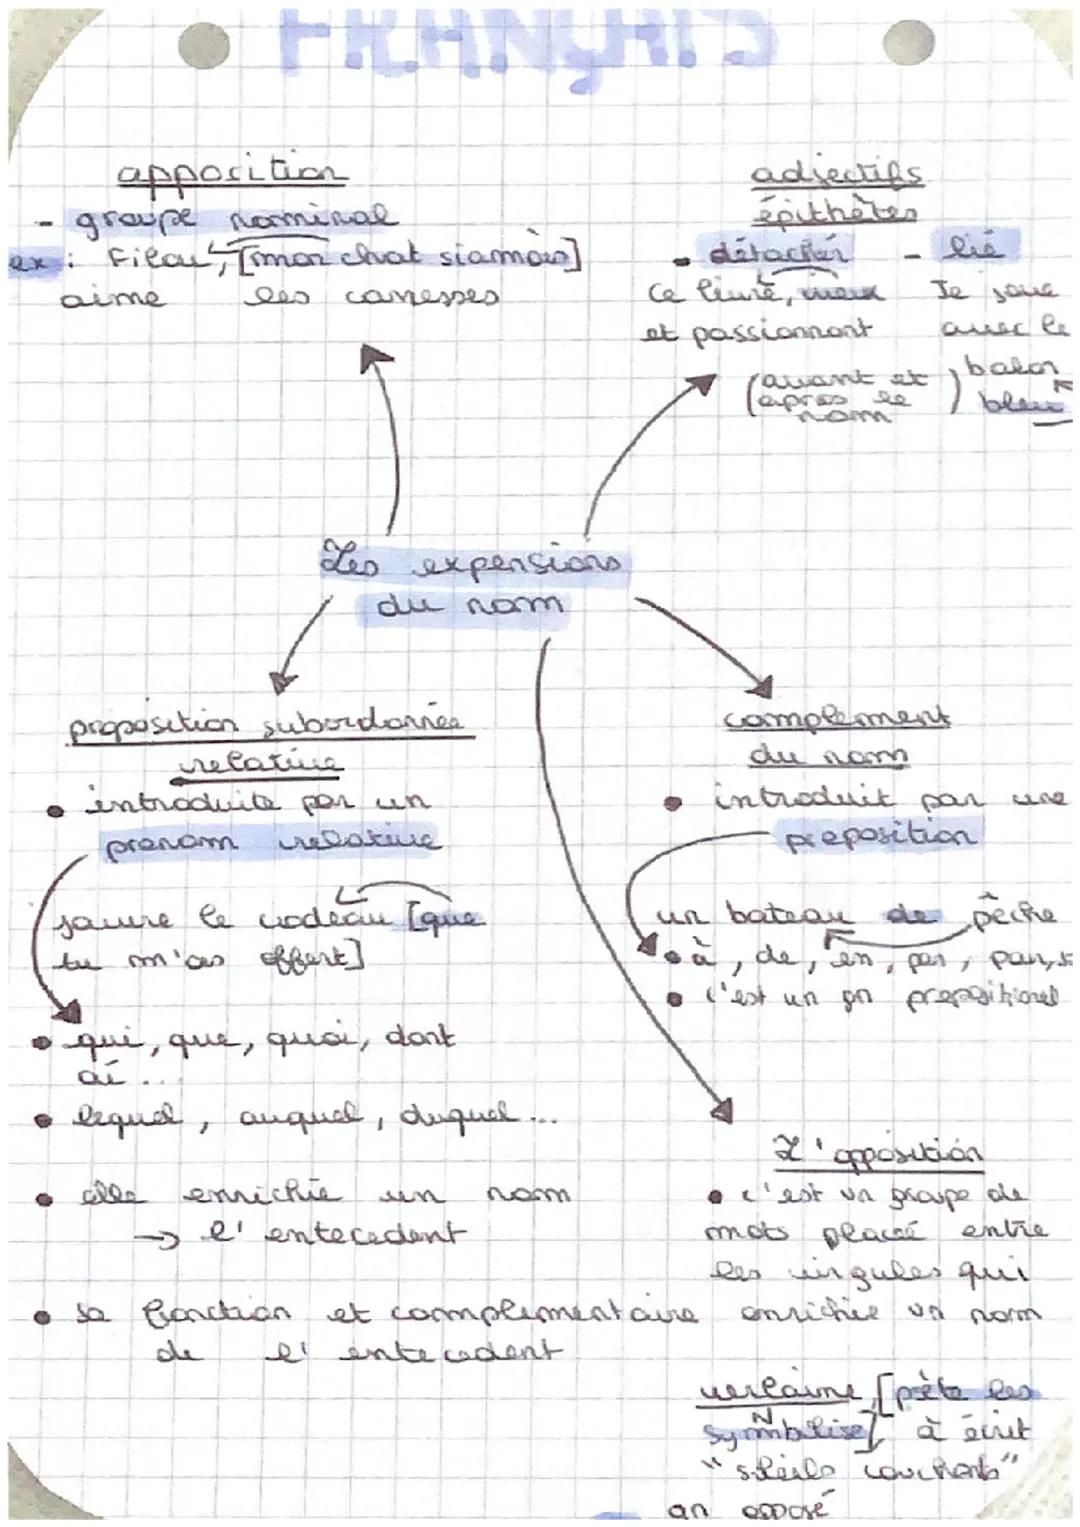 FRANÇAIS
apposition
- groupe nominal
ex : Filou, [mon chat siamois]
aime les caresses
adjectifs
épithètes
• détacher
Ce livre, vieux
et passionnant
(avant et
après le
nom)
- lié
Je joue
avec le
balon
bleu
Les expensions
du nom
proposition subordonnée
relative
• introduite par un
pronom relative
j'aure le cadeau [que
tu m'as offert]
• qui, que, quoi, dont
où ...
• lequel, auquel, duquel ...
• elle enrichie un nom
→ l'entecedent
• sa fonction et complementaire
de l'entecedent
complement
du nom
• introduit par une
preposition
un bateau de pêche
• à, de, en, par, pour, s
• c'est un gn prepositionel
L'apposition
• c'est un groupe de
mots placé entre
les virgules qui
enrichie un nom
verlaine, [poète les
symbolise], à écrit
"soleils couchants"
gn apposé